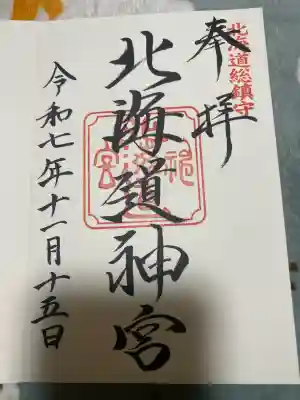 北海道総鎮守
奉拝
北海道神宮
令和七年十一月十五日